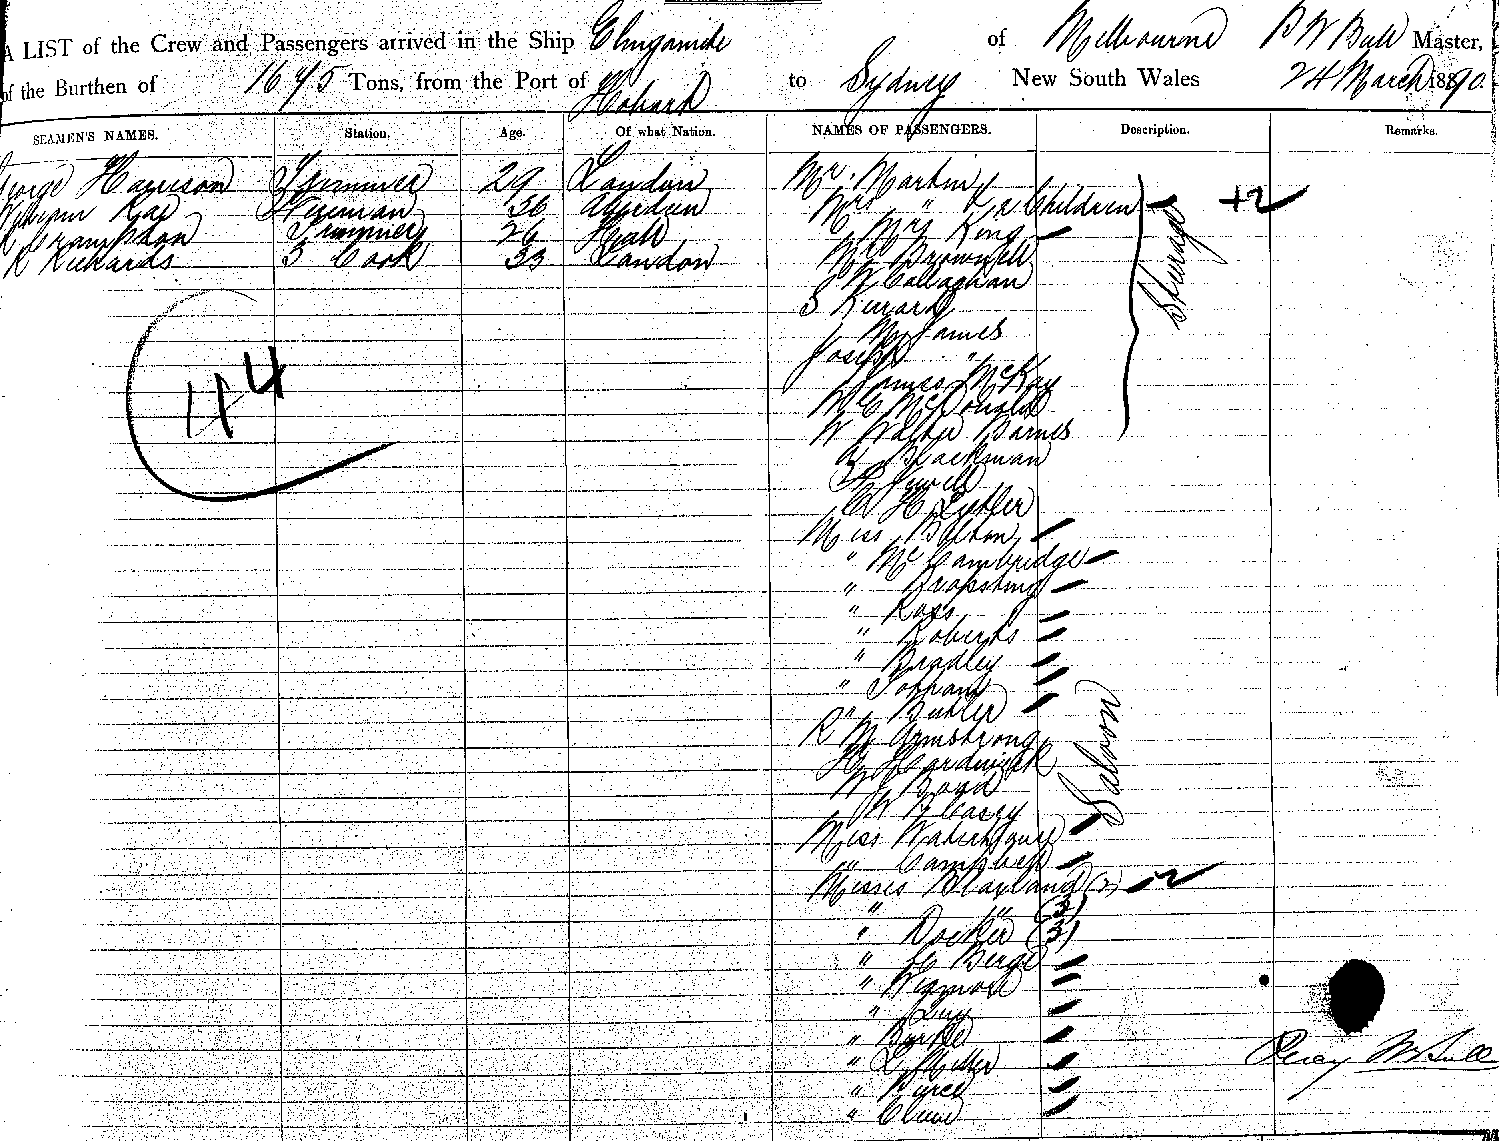 A LIST of the Crew and Passengers arrived in the Ship Elingamite of Melbourne P W Bull Master,
of the Burthen of 1675 Tons, from the Port of Hobart to Sydney New South Wales 24 March 1890.
SEAMEN'S NAMES. Station. Age. Of what Nation. NAMES OF PASSENGERS. Description. Remarks.
George Harrison Trimmer 29 London
William Rae Fireman 36 Aberdeen
Crampton Trimmer 26 Hull
R Richards 3 Cook 33 London
44
Mr. Martin
Mrs " & 2 Children +2
Mrs King
Mr Brownell
Callaghan
S
Mr James
Joseph "
James McKay
McDonald
W Walter Barnes
Blackman
Jewell
C H Butler
Steerage
Miss Bolton
" McCambridge
"
" Ross
" Roberts
" Bradley
" Topham
" Butler
R M Armstrong
H Hardwick
W Boyd
W Casey
Miss Waterhouse
" Campbell
Misses Blaxland (2) 2
" " (3)
" Docker (3)
"
" Wigmore
" Guy
" Burke
" L Miller
" Pierce
"
Saloon
Percy W Bull